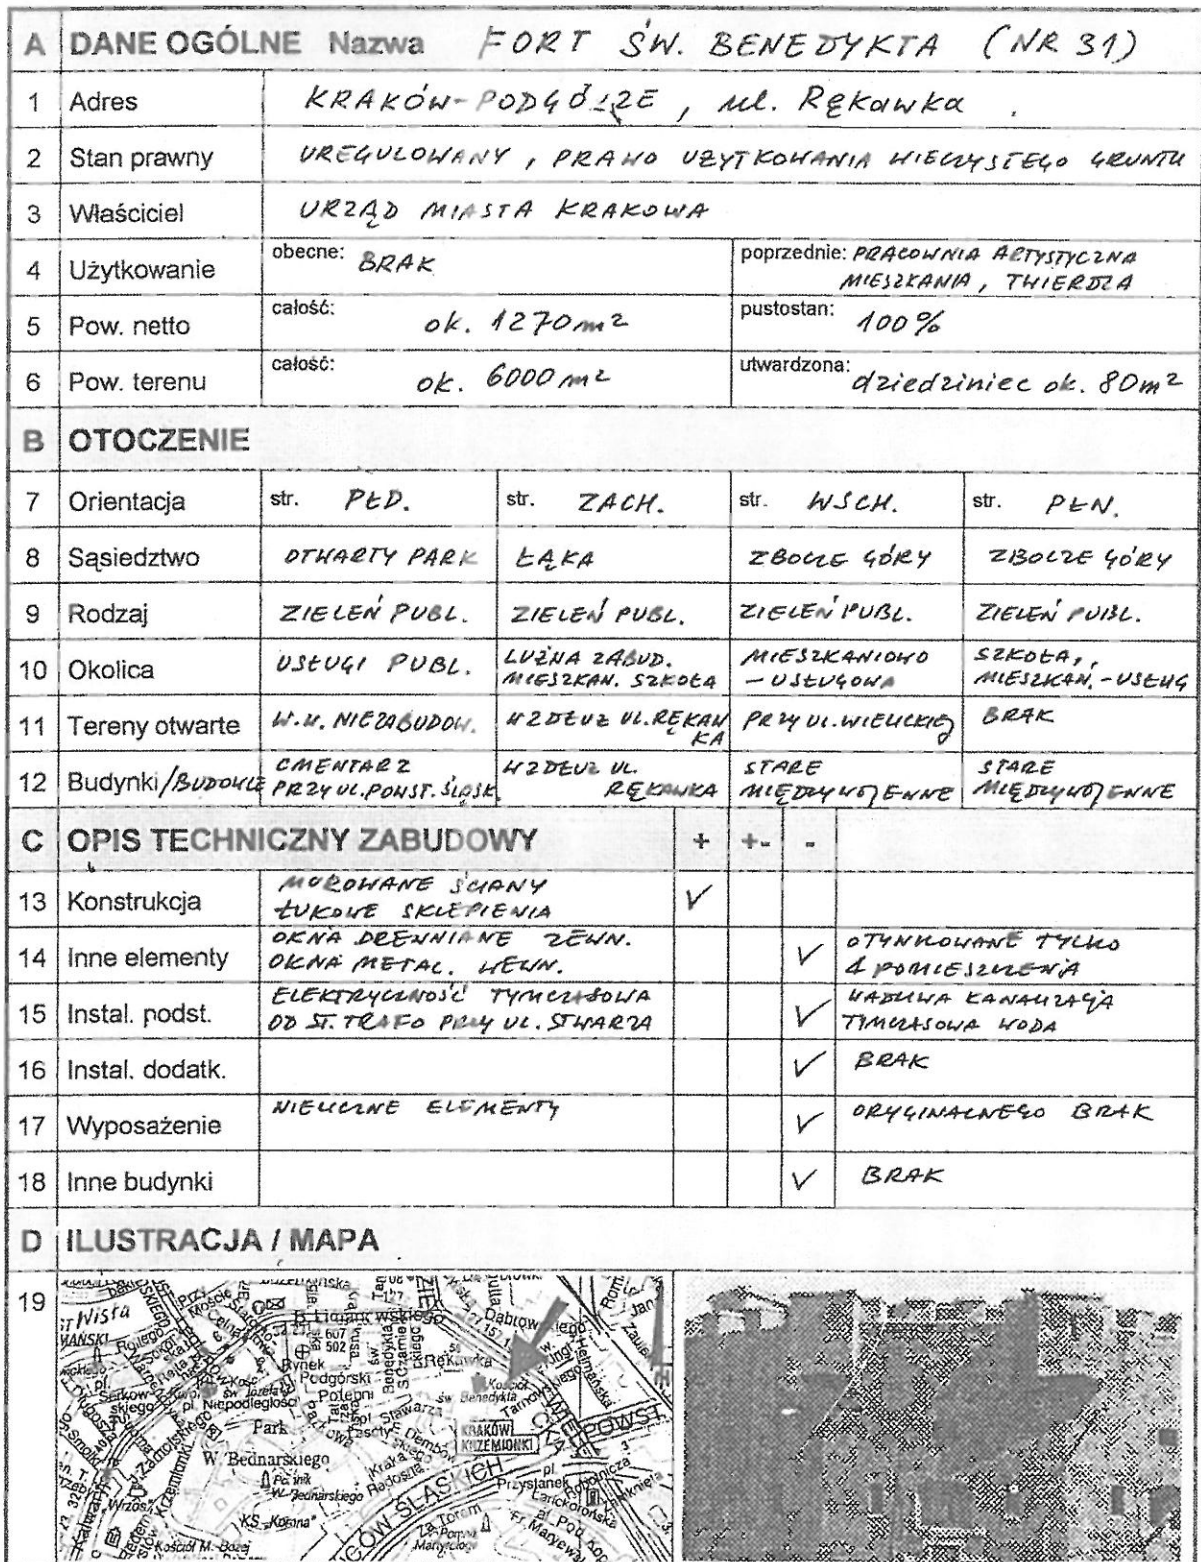 A DANE OGÓLNE Nazwa FORT ŚW. BENEDYKTA (NR 31)
1 Adres KRAKÓW-PODGÓRZE, ul. Rękawka
2 Stan prawny UREGULOWANY, PRAWO UŻYTKOWANIA WIECZYSTEGO GRUNTU
3 Właściciel URZĄD MIASTA KRAKOWA
4 Użytkowanie obecne: BRAK poprzednie: PRACOWNIA ARTYSTYCZNA
MIESZKANIA, TWIERDZA
5 Pow. netto całość: ok. 1270 m2 pustostan: 100%
6 Pow. terenu całość: ok. 6000 m2 utwardzona: dziedziniec ok. 80m2
B OTOCZENIE
7 Orientacja str. PŁD. str. ZACH. str. WSCH. str. PŁN.
8 Sąsiedztwo OTWARTY PARK ŁĄKA ZBOCZE GÓRY ZBOCZE GÓRY
9 Rodzaj ZIELEŃ PUBL. ZIELEŃ PUBL. ZIELEŃ PUBL. ZIELEŃ PUBL.
10 Okolica USŁUGI PUBL. LUŹNA ZABUD. MIESZKANIOWO SZKOŁA,
MIESZKAN. SZKOŁA - USŁUGOWA MIESZKAN.-USŁUG
11 Tereny otwarte W.W. NIEZABUDOW. WZDŁUŻ UL. RĘKAW PRZY UL. WIELICKIEJ BRAK
KA
12 Budynki/BUDOWLE CMENTARZ WZDŁUŻ UL. STARE STARE
PRZY UL. POWST. ŚLĄSK. RĘKAWKA MIĘDZYWOJENNE MIĘDZYWOJENNE
C OPIS TECHNICZNY ZABUDOWY + +- -
13 Konstrukcja MUROWANE ŚCIANY ✓
ŁUKOWE SKLEPIENIA
14 Inne elementy OKNA DREWNIANE ZEWN. ✓ OTYNKOWANE TYLKO
OKNA METAL. WEWN. 4 POMIESZCZENIA
15 Instal. podst. ELEKTRYCZNOŚĆ TYMCZASOWA ✓ WADLIWA KANALIZACJA
OD ST. TRAFO PRZY UL. STWARZA TYMCZASOWA WODA
16 Instal. dodatk. ✓ BRAK
17 Wyposażenie NIELICZNE ELEMENTY ✓ ORYGINALNEGO BRAK
18 Inne budynki ✓ BRAK
D ILUSTRACJA / MAPA
19
Wisła
Rynek
Podgórski
Rękawka
Kościół
św. Benedykta
pl. Niepodległości
Park
W. Bednarskiego
KRAKÓW
KRZEMIONKI
KS „Korona"
Kościół M. Bożej